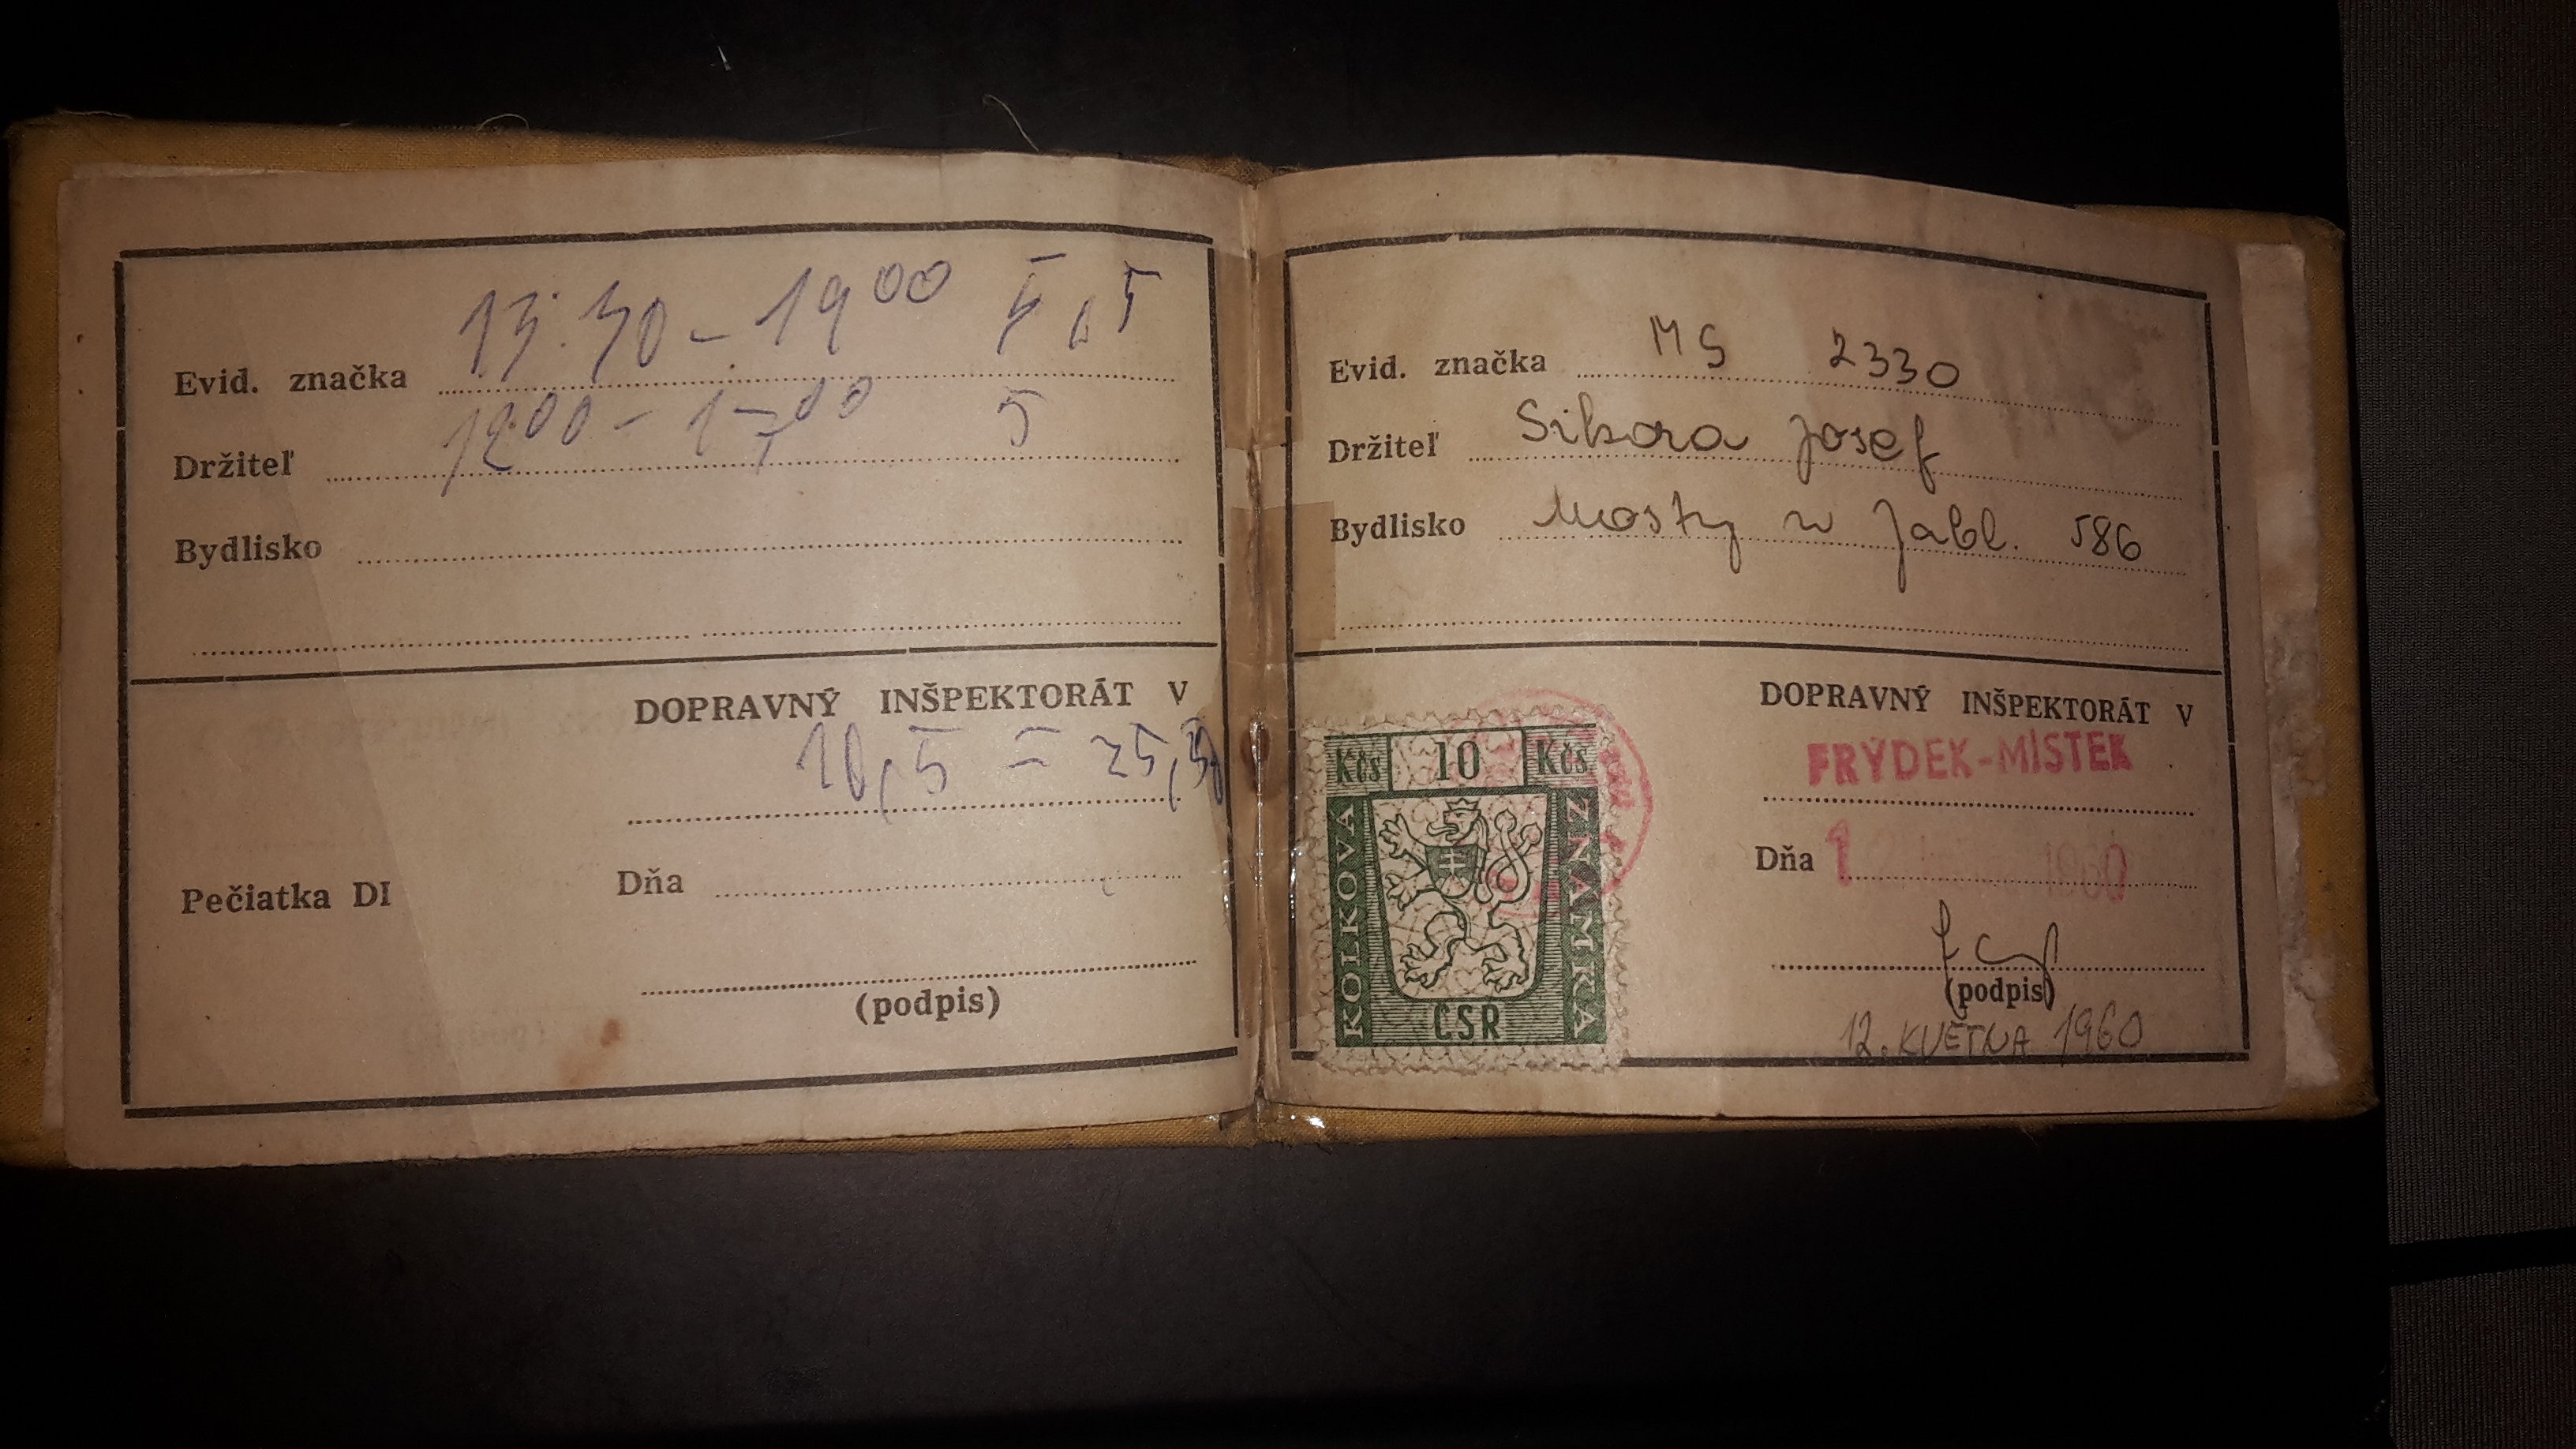 13:30 - 19⁰⁰ 5,5
Evid. značka
12⁰⁰ - 17⁰⁰ 5
Držiteľ
Bydlisko
DOPRAVNÝ INŠPEKTORÁT V
10,5 = 25,50
Pečiatka DI
Dňa
(podpis)
Evid. značka MS 2330
Držiteľ Sikora Josef
Bydlisko Mosty u Jabl. 586
DOPRAVNÝ INŠPEKTORÁT V
FRÝDEK-MÍSTEK
Kčs 10 Kčs
KOLKOVÁ ZNÁMKA
ČSR
Dňa 1 1960
(podpis)
12. KVĚTNA 1960